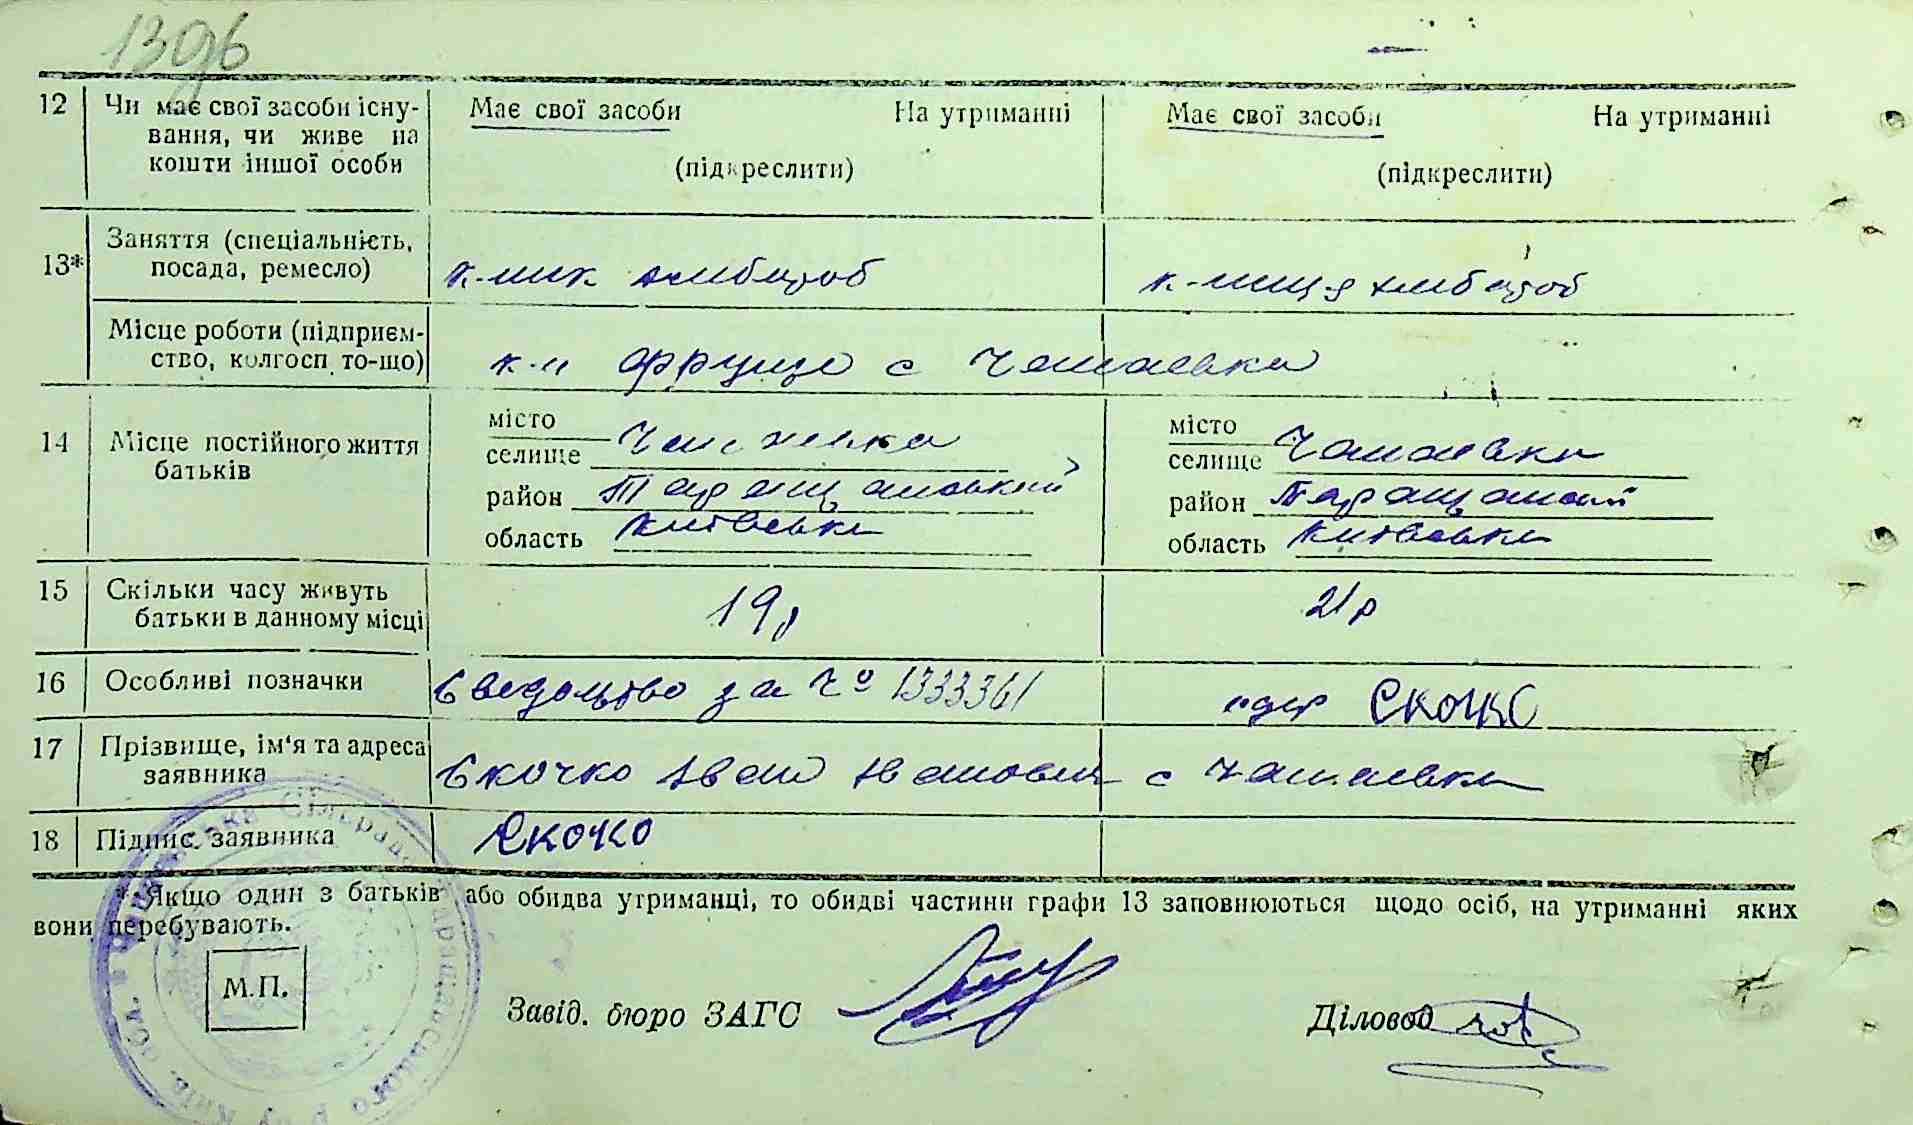 1396
12 Чи має свої засоби існу-
вання, чи живе на
кошти іншої особи
Має свої засоби На утриманні
(підкреслити)
Має свої засоби На утриманні
(підкреслити)
13* Заняття (спеціальність,
посада, ремесло)
к-ник хлібороб
к-ниця хлібороб
Місце роботи (підприєм-
ство, колгосп то-що)
к-п Фрунзе с Чапаевка
14 Місце постійного життя
батьків
місто
селище Чапаевка
район Таращанський
область Київська
місто
селище Чапаевка
район Таращанский
область Київська
15 Скільки часу живуть
батьки в данному місці
19р
21р
16 Особливі позначки
Сведоцтво за № 1333361
одер Скочко
17 Прізвище, ім'я та адреса
заявника
Скочко Іван Іванович с Чапаевка
18 Підпис заявника
Скочко
* Якщо один з батьків або обидва утриманці, то обидві частини графи 13 заповнюються щодо осіб, на утриманні яких
вони перебувають.
М.П.
Завід. бюро ЗАГС
Діловод